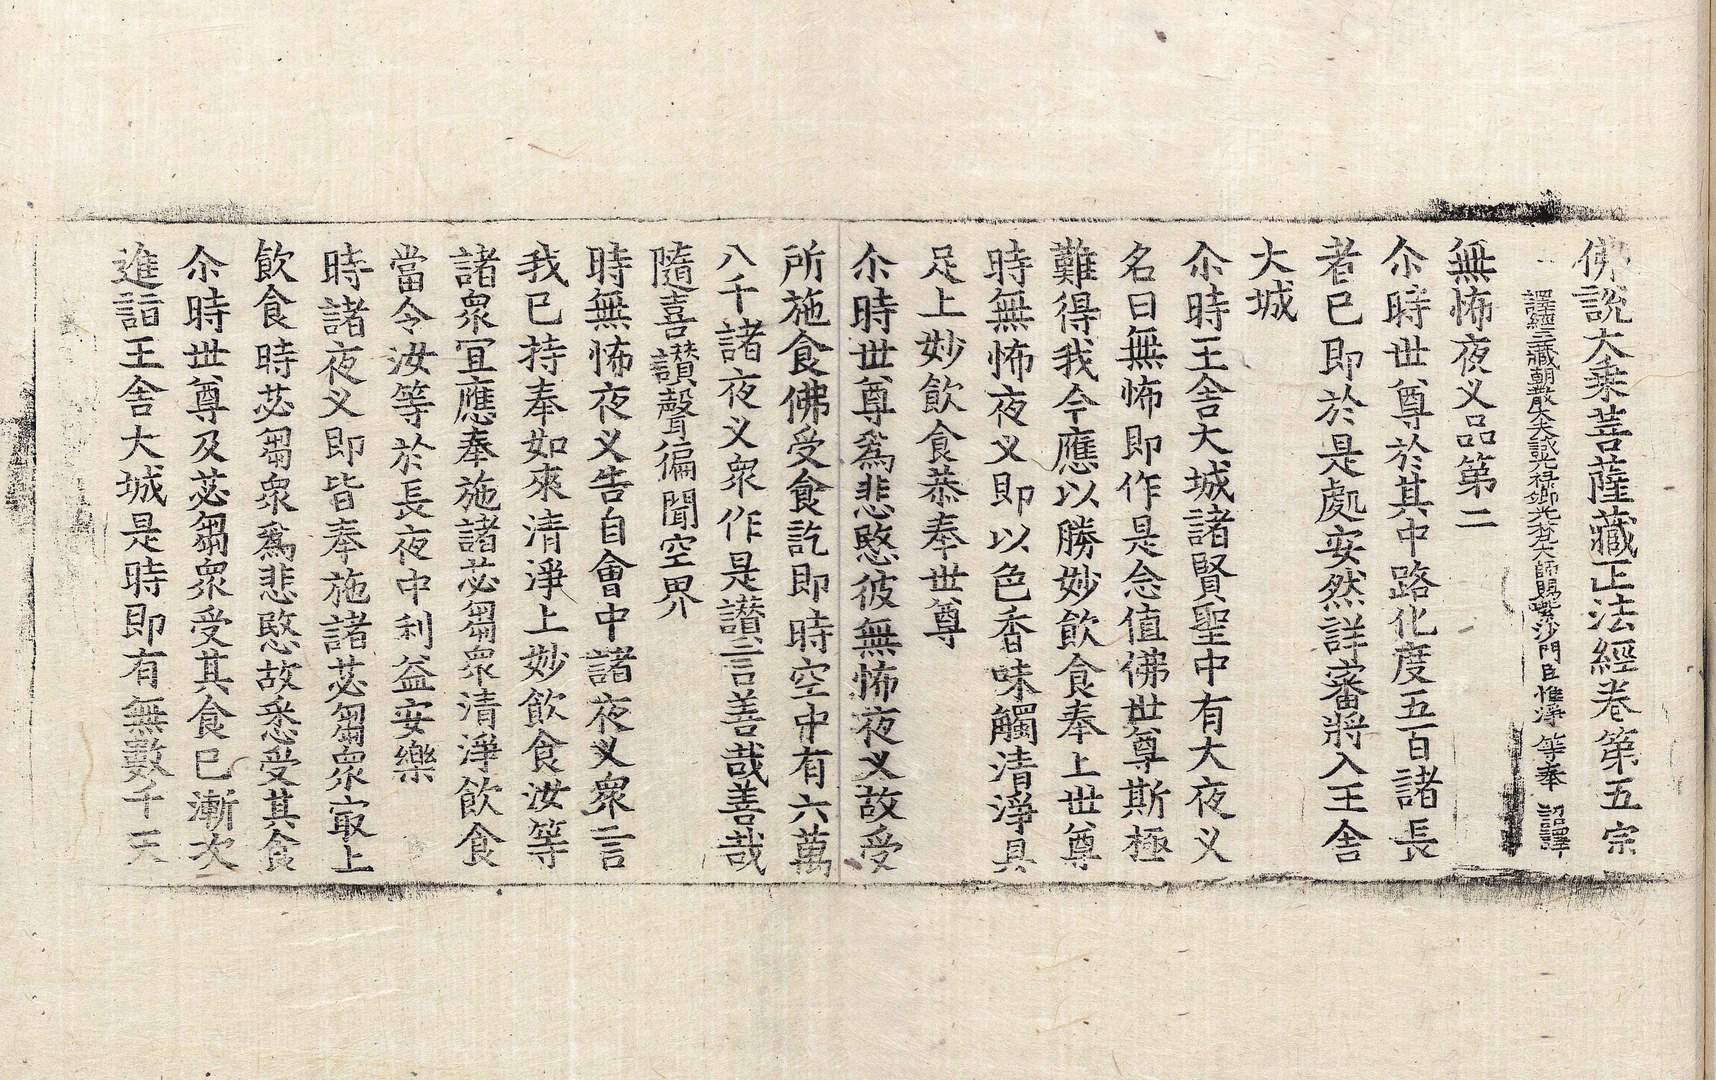 佛說大乘菩薩藏正法經卷第五 宗
譯經三藏朝散大夫試光祿卿光梵大師賜紫沙門臣惟淨等奉 詔譯
無怖夜义品第二
尒時世尊於其中路化度五百諸長
者已即於是處安然詳審將入王舍
大城
尒時王舍大城諸賢聖中有大夜义
名曰無怖即作是念值佛世尊斯極
難得我今應以勝妙飲食奉上世尊
時無怖夜义即以色香味觸清淨具
足上妙飲食恭奉世尊
尒時世尊爲悲愍彼無怖夜义故受
所施食佛受食訖即時空中有六萬
八千諸夜义衆作是讃言善哉善哉
隨喜讃聲徧聞空界
時無怖夜义告自會中諸夜义衆言
我已持奉如來清淨上妙飲食汝等
諸衆冝應奉施諸苾芻衆清淨飲食
當令汝等於長夜中利益安樂
時諸夜义即皆奉施諸苾芻衆㝡上
飲食時苾芻衆爲悲愍故悉受其食
尒時世尊及苾芻衆受其食已漸次
進詣王舍大城是時即有無數千天